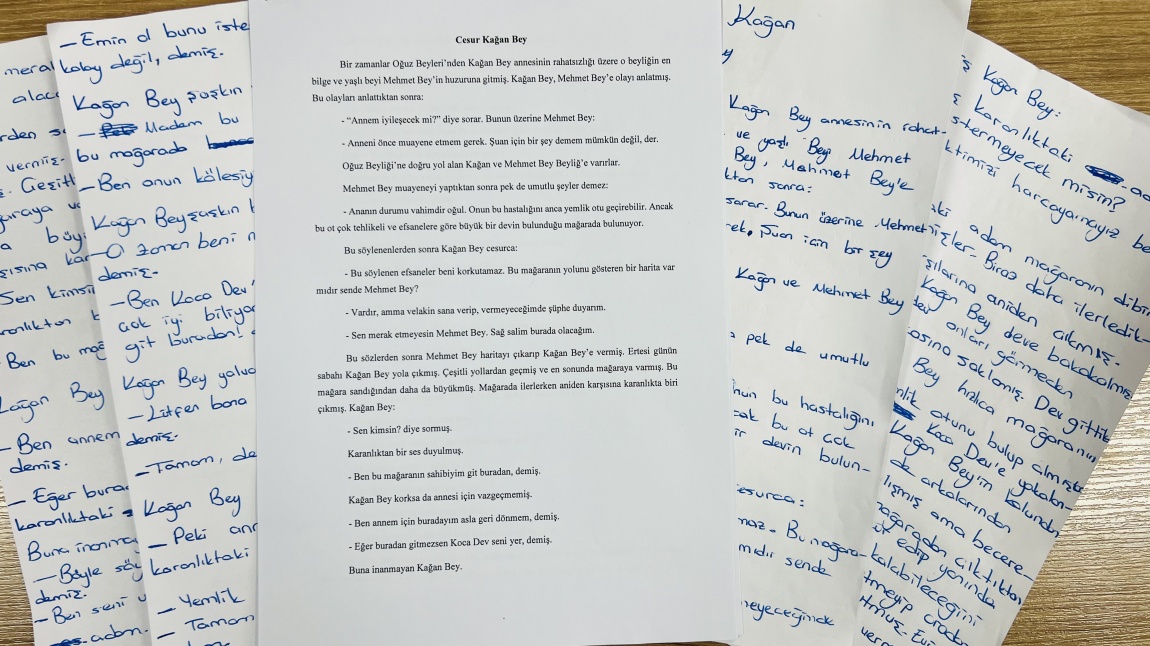 meral
alaca
rden s
vermiş.
ş. Çeşitl
Sen kimsi
Ben bu mağ
Kağan Bey
- Ben annem
demiş.
- Eğer bura
karanlıktaki
Buna inanma
- Böyle söy
demiş.
- Ben seni
adam.
- Emin ol bunu iste
kolay değil, demiş.
Kağan Bey şaşkın
- Madam bu
bu mağarada
- Ben onun kölesiy
Kağan Bey şaşkın
- O zaman beni
demiş.
- Ben Koca Dev'
çok iyi biliyo
git buradan!
Kağan Bey yalva
- Lütfen bana
demiş.
- Tamam, de
Kağan Bey
- Peki
karanlıktaki
- Yemlik
- Tamam
Cesur Kağan Bey
Bir zamanlar Oğuz Beyleri'nden Kağan Bey annesinin rahatsızlığı üzere o beyliğin en
bilge ve yaşlı beyi Mehmet Bey'in huzuruna gitmiş. Kağan Bey, Mehmet Bey'e olayı anlatmış.
Bu olayları anlattıktan sonra:
- “Annem iyileşecek mi?” diye sorar. Bunun üzerine Mehmet Bey:
- Anneni önce muayene etmem gerek. Şuan için bir şey demem mümkün değil, der.
Oğuz Beyliği'ne doğru yol alan Kağan ve Mehmet Bey Beyliğ'e varırlar.
Mehmet Bey muayeneyi yaptıktan sonra pek de umutlu şeyler demez:
- Ananın durumu vahimdir oğul. Onun bu hastalığını anca yemlik otu geçirebilir. Ancak
bu ot çok tehlikeli ve efsanelere göre büyük bir devin bulunduğu mağarada bulunuyor.
Bu söylenenlerden sonra Kağan Bey cesurca:
- Bu söylenen efsaneler beni korkutamaz. Bu mağaranın yolunu gösteren bir harita var
mıdır sende Mehmet Bey?
- Vardır, amma velakin sana verip, vermeyeceğimde şüphe duyarım.
- Sen merak etmeyesin Mehmet Bey. Sağ salim burada olacağım.
Bu sözlerden sonra Mehmet Bey haritayı çıkarıp Kağan Bey'e vermiş. Ertesi günün
sabahı Kağan Bey yola çıkmış. Çeşitli yollardan geçmiş ve en sonunda mağaraya varmış. Bu
mağara sandığından daha da büyükmüş. Mağarada ilerlerken aniden karşısına karanlıkta biri
çıkmış. Kağan Bey:
- Sen kimsin? diye sormuş.
Karanlıktan bir ses duyulmuş.
- Ben bu mağaranın sahibiyim git buradan, demiş.
Kağan Bey korksa da annesi için vazgeçmemiş.
- Ben annem için buradayım asla geri dönmem, demiş.
- Eğer buradan gitmezsen Koca Dev seni yer, demiş.
Buna inanmayan Kağan Bey.
Kağan
y
Kağan Bey annesinin rahat-
ve yaşlı Bey Mehmet
Bey, Mehmet Bey'e
ktan sonra:
sorar. Bunun üzerine Mehmet
rek. Şuan için bir şey
Kağan ve Mehmet Bey
a pek de umutlu
nun bu hastalığını
cak bu ot çok
ir devin bulun-
esurca:
maz. Bu mağara-
mıdır sende
meyeceğimde
ş Kağan Bey:
karanlıktaki
stermeyecek misin?
ktimizi harcayamayız be
ki adam mağaranın dibin
işler. Biraz daha ilerledik-
şılarına aniden çıkmış.
Kağan Bey deve bakakalmış
dev onları görmeden
asına saklamış. Dev gittik
Bey hızlıca mağaranın
nlik otunu bulup almıştır
Koca Dev'e yakalan-
Kağan Bey'in kolundan
de arkalarından
lışmış ama becere-
mağaradan çıktıktan
edip yanında
kalabileceğini
tmeyip oradan
tmuş. Evi
verm